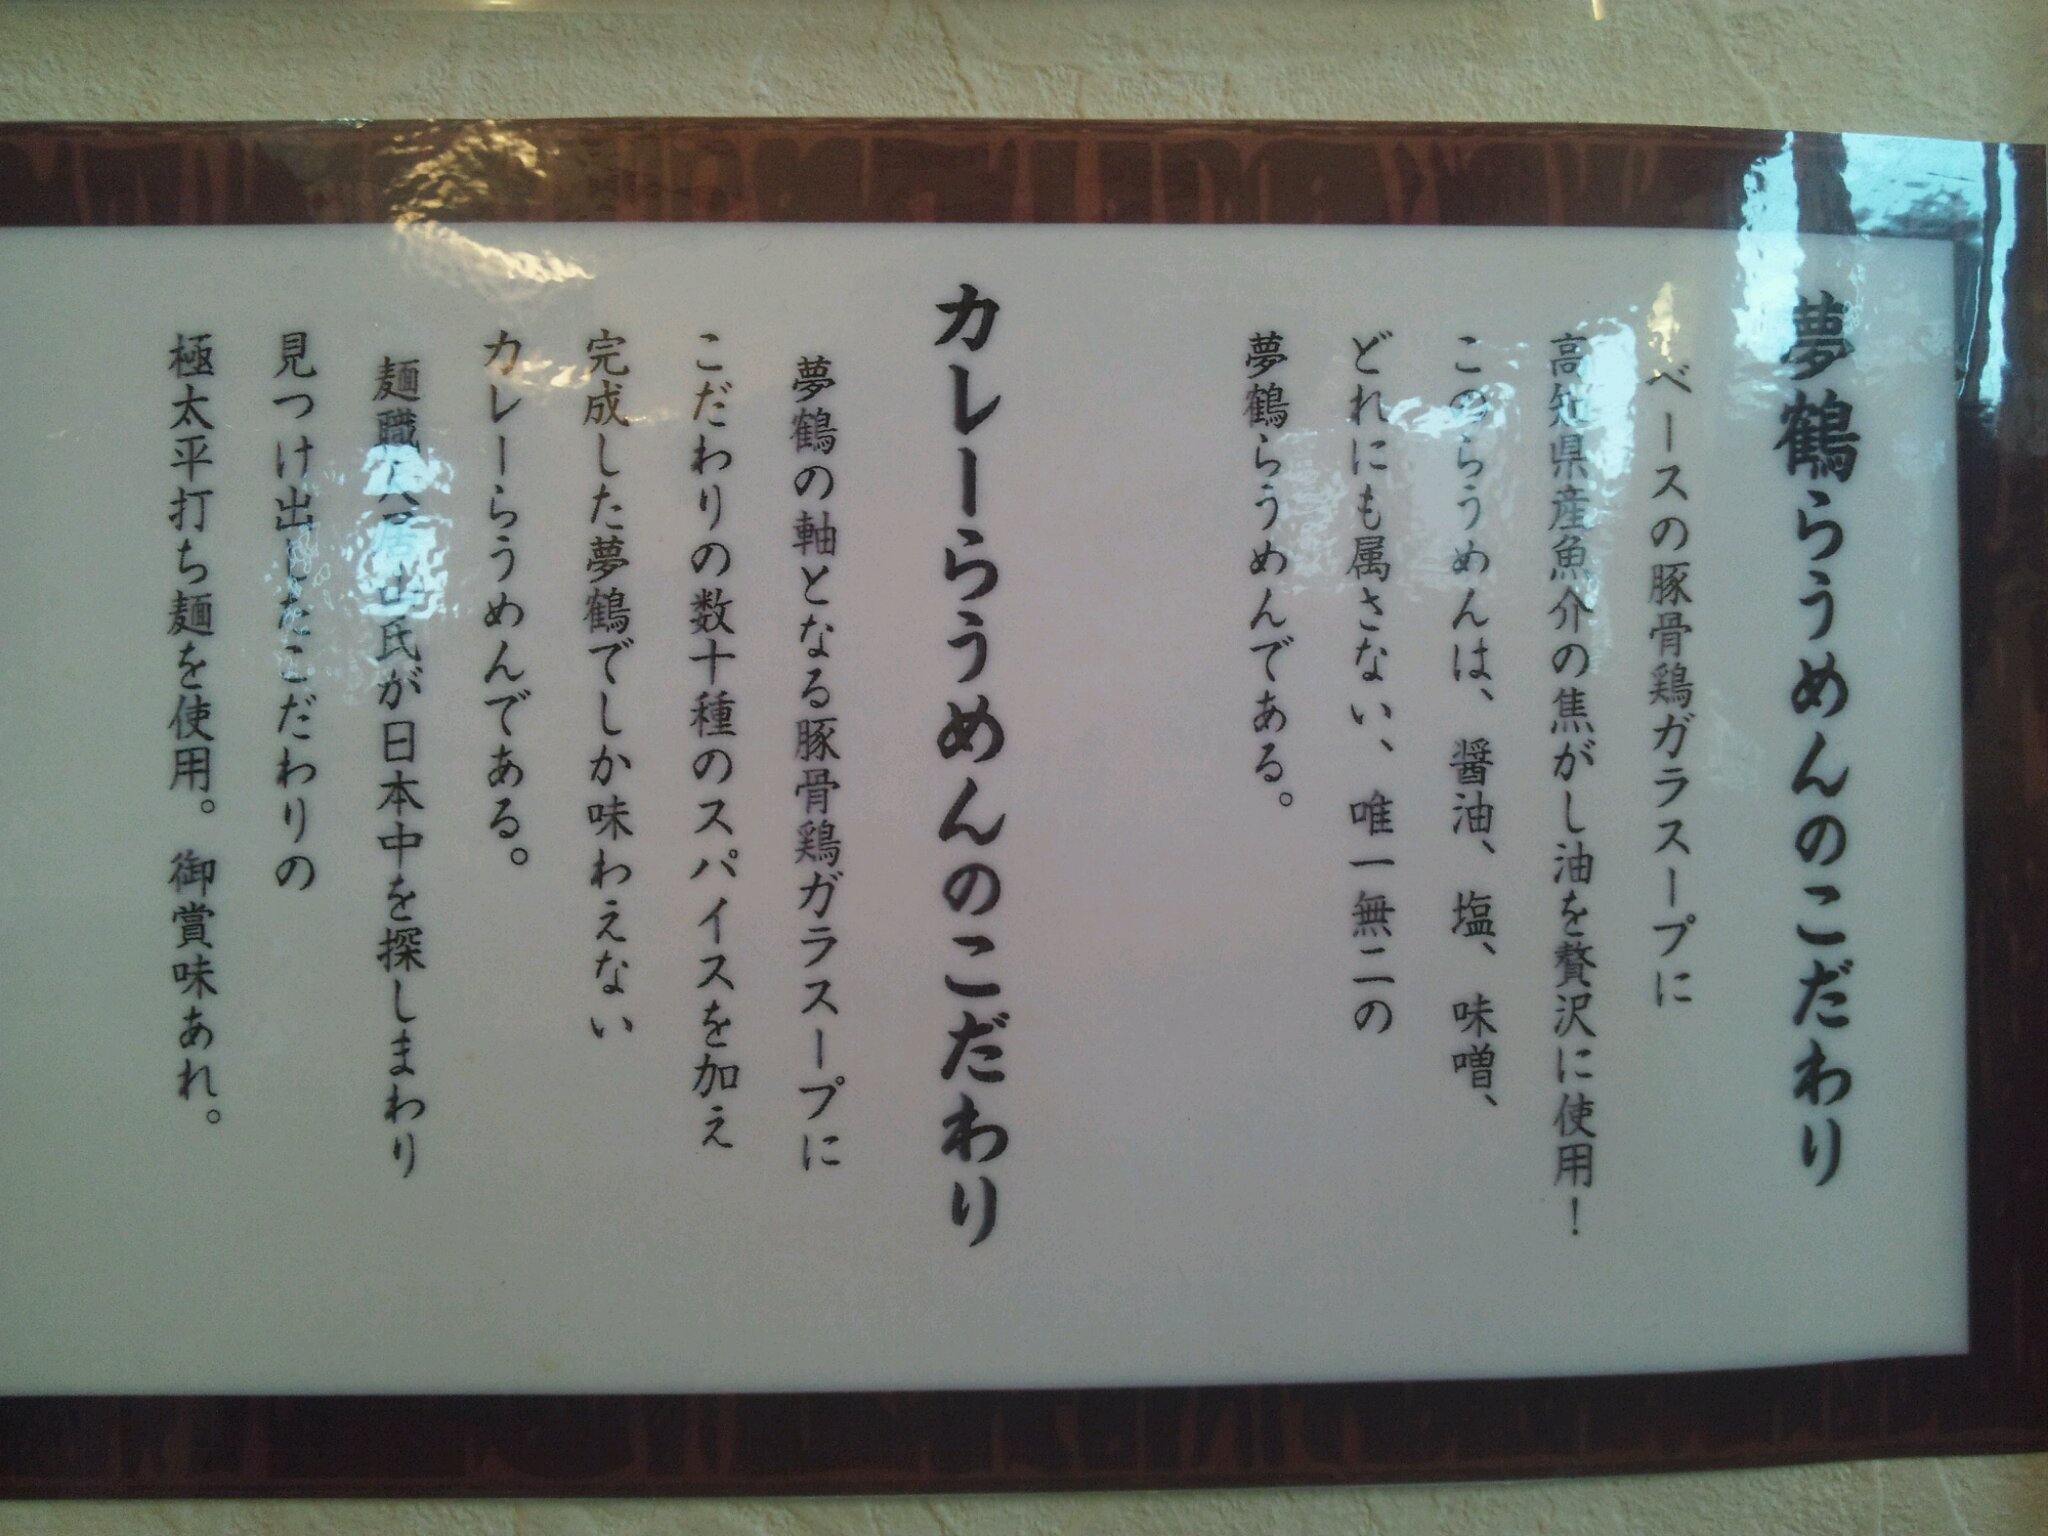 夢鶴らうめんのこだわり
ベースの豚骨鶏ガラスープに
高知県産魚介の焦がし油を贅沢に使用!
このらうめんは、醤油、塩、味噌、
どれにも属さない、唯一無二の
夢鶴らうめんである。
カレーらうめんのこだわり
夢鶴の軸となる豚骨鶏ガラスープに
こだわりの数十種のスパイスを加え
完成した夢鶴でしか味わえない
カレーらうめんである。
麺職人 氏が日本中を探しまわり
見つけ出したこだわりの
極太平打ち麺を使用。御賞味あれ。